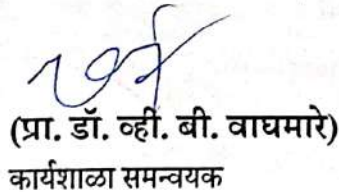 (प्रा. डॉ. व्ही. बी. वाघमारे)
कार्यशाळा समन्वयक